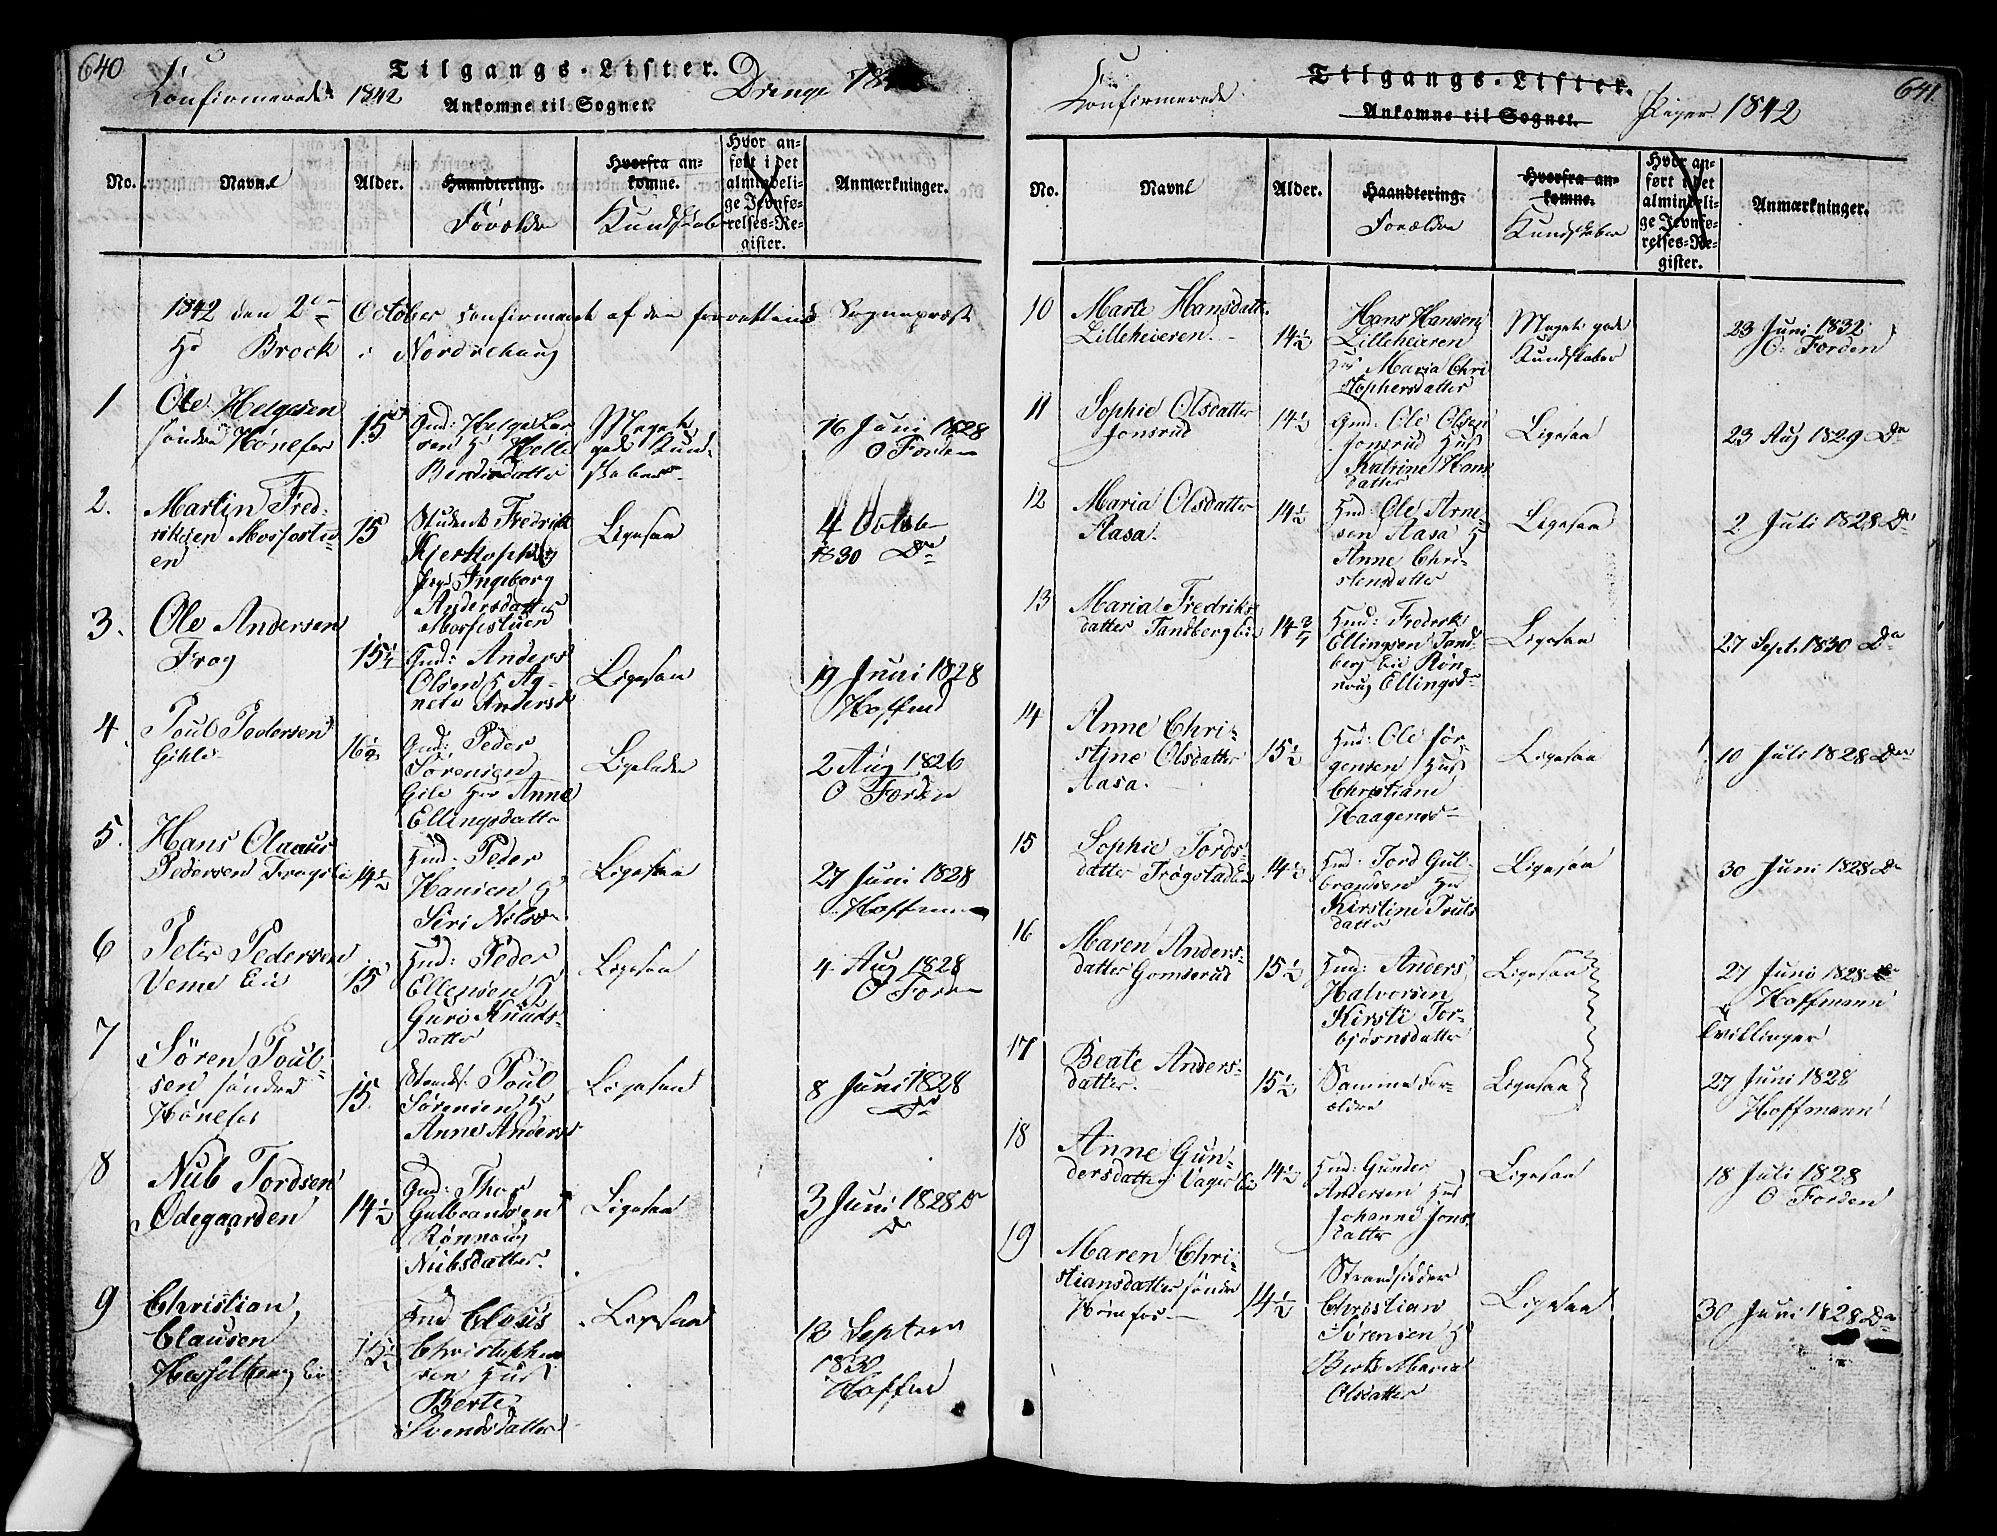 640
Tilgangs-Lister.
Konfirmerede 1842
Drenge
Ankomne til Sognet.
No.
Navne
Alder.
Haandtering.
Forældre
Hvorfra an-
komne.
Kundskaber
Hvor an-
ført i det
almindeli-
ge Jevnfø-
relses-Re-
gister.
Anmærkninger.
1842 den 2den October confirmeret af den forrettende Sognepræst
Hr Brock i Norderhoug
1
Ole Helgesen
søndre Hønefos
15
Gmd: Helge Lar
sen H Helle
datter
Meget
gode Kund-
skaber
16 Juni 1828
O Forden
2.
Martin Fred-
riksen Mosfostu-
en
15
Student Fredrik
Kjerkoph og
Ingeborg
Andersdatter
Mosfostuen
Ligesaa
4 Octob
1830 Do
3.
Ole Andersen
Frog
15¼
Gmd: Anders
Olsen H Ag-
nete Andersd
Ligesaa
19 Juni 1828
Hoffm
4.
Poul Pedersen
Gihle
16½
Gmd: Peder
Sørensen
Gile Hus Anne
Ellingsdatter
Ligeledes
2 Aug 1826
O Forden
5.
Hans Olaus
Pedersen Frogs
14½
Hmd: Peder
Hansen H
Siri Nilsd
Ligesaa
27 Juni 1828
Hoffm
6
Peter Pedersen
Veme Eie
15
Hmd: Peder
Ellensen H
Guri Knuds-
datter
Ligesaa
4 Aug 1828
O Forden
7
Søren Poul-
sen søndre
Hønefos
15
Strands. Poul
Sørensen H
Anne Anders
Ligesaa
8 Juni 1828
Do
8
Nub Tordsen
Ødegaarden
14½
Gmd: Thor
Gulbrandsen
Rønnoug
Nubsdatter.
Ligesaa
3 Juni 1828
Do
9
Christian
Clausen
Hesselberg Eie
15½
Hmd Claus
Christophers
sen Hus
Berte
Svendsdatter
Ligesaa
13 Septem
1830
Hoffm
641.
Tilgangs-Lister.
Konfirmerede
Piger 1842
Ankomne til Sognet.
No.
Navne
Alder.
Haandtering.
Forældre
Hvorfra an-
komne.
Kundskaber
Hvor an-
ført i det
almindeli-
ge Jevnfø-
relses-Re-
gister.
Anmærkninger.
10
Marte Hansdatter
Lilleheieren
14½
Hans Hansen
Lilleheieren
Maria Chri
stophersdatter
Meget gode
Kundskaber
23 Juni 1832
O. Forden
11
Sophie Olsdatter
Jonsrud
14½
Gmd: Ole Olsen
Jonsrud Hus
Katrine Hans
datter
Ligesaa
23 Aug 1829 Do
12
Maria Olsdatter
Aasa.
14½
Hmd: Ole Arne-
sen Aasa H
Anne Chri-
stensdatter
Ligesaa
2 Juli 1828 Do
13
Maria Fredriks
datter Tandberg Eie
14¾
Hmd: Frederk
Ellingsen Tand-
berg Eie Røn-
noug Ellingsd
Ligesaa
27 Sept. 1830 Do
14
Anne Chri-
stine Olsdatter
Aasa.
15½
Hmd: Ole Jør-
gensen Hus
Christiane
Haagens
Ligesaa
10 Juli 1828 Do
15
Sophie Tords-
datter Frøgstad Eie
14½
Hmd: Tord Gul-
brandsen Hus
Kirstine Pouls
datter
Ligesaa
30 Juni 1828 Do
16
Maren Anders-
datter Gomserud
15½
Hmd: Anders
Halvorsen
Kirsti Tor-
bjørnsdatter
Ligesaa
27 Juni 1828
Hoffmann
tvillinger
17
Beate Anders-
datter.
15½
Samme For-
ældre
Ligesaa
27 Juni 1828
Hoffmann
18
Anne Gun-
dersdatter Vager Eie
14½
Hmd: Gunder
Andersen Hus
Johanne Jons
datter
Ligesaa
18 Juli 1828
O Forden
19
Maren Chri-
stiansdatter søndre
Hønefos
14½
Strandsidder
Christian
Sørensen H
Berte Maria
Olsdatter
Ligesaa
30 Juni 1828 Do